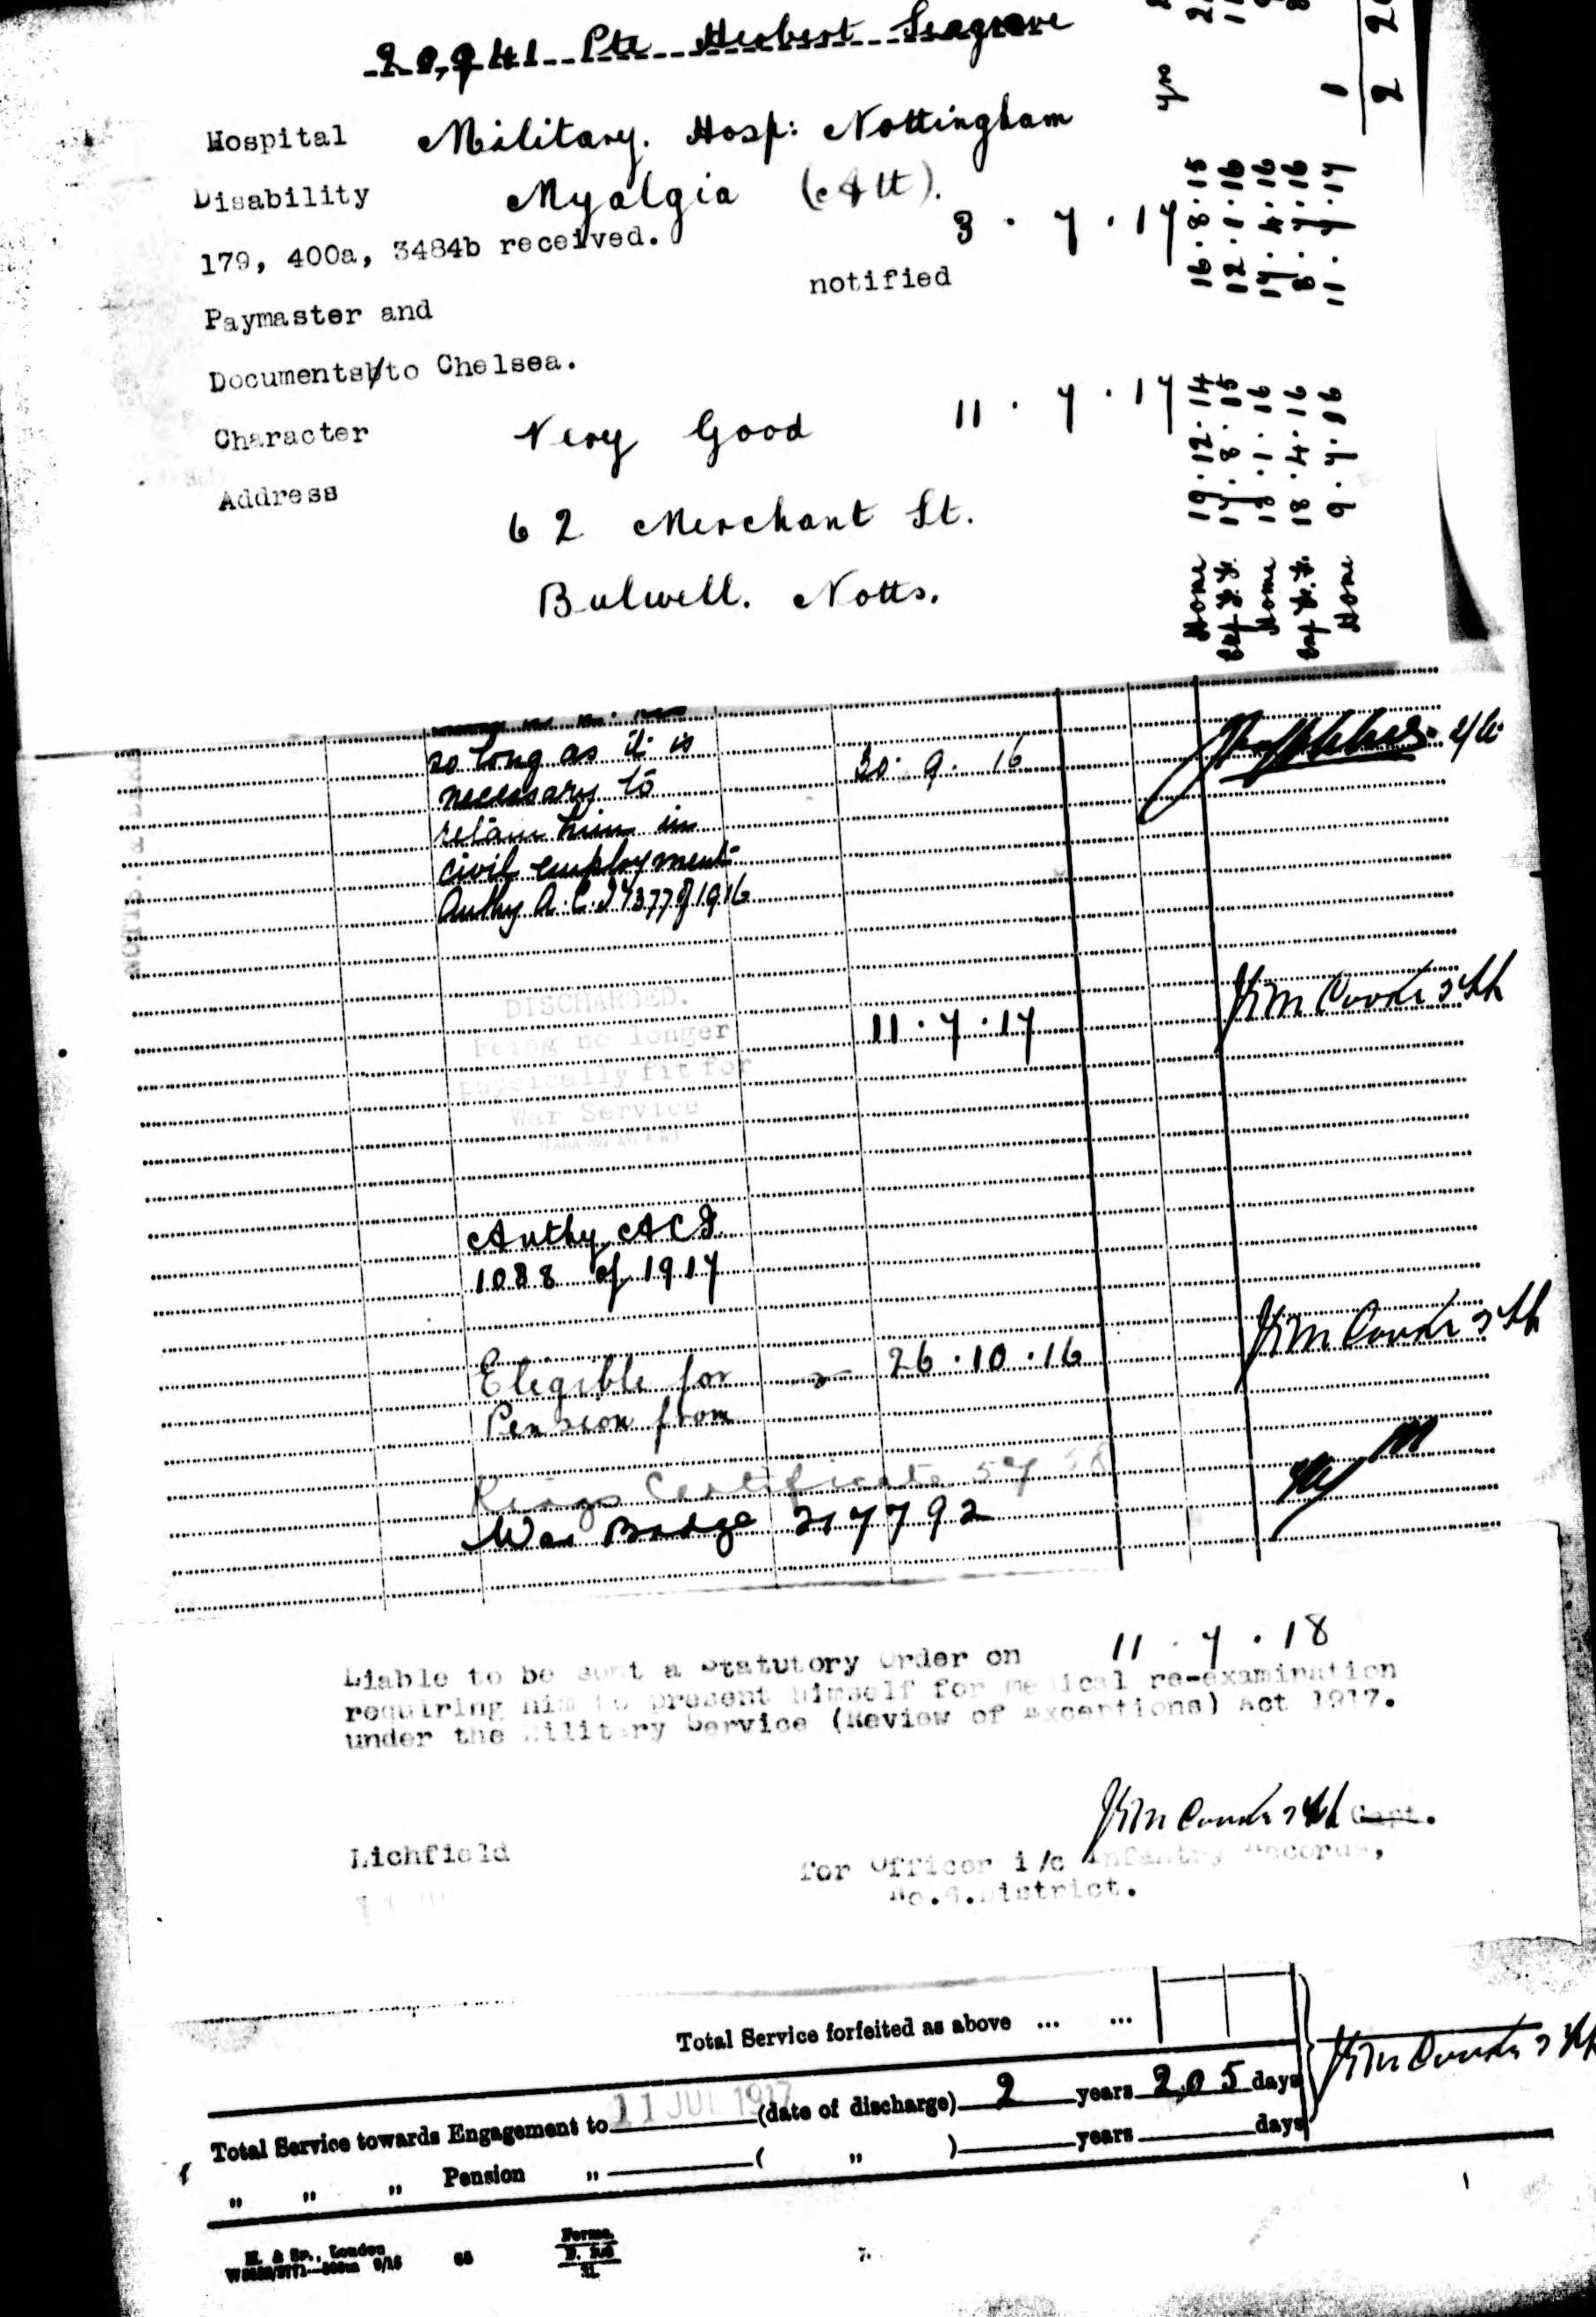 20,941 Pte Herbert Seagrave
Hospital Military. Hosp: Nottingham
Disability Myalgia (Att).
179, 400a, 3484b received. 3 . 7 . 17
Paymaster and notified
Documents to Chelsea.
Character Very Good 11 . 7 . 17
Address
62 Merchant St.
Bulwell. Notts.
Home 19.12.14 16.8.15
Exp. F.F. 17.8.15 12.1.16
Home 13.1.16 17.4.16
Exp. F.F. 18.4.16 8.7.16
Home 9.7.16 11.7.17
so long as it is
necessary to 30. 9. 16
retain him in
civil employment
Authy A.C.I 1377 of 1916
DISCHARGED.
Being no longer 11.7.17
physically fit for
War Service
Authy ACI
1088 of 1917
Elegible for 26.10.16
Pension from
Kings Certificate
War Badge 217792
Liable to be sent a Statutory Order on 11 . 7 . 18
requiring him to present himself for medical re-examination
under the Military Service (Review of Exceptions) Act 1917.
Capt.
Lichfield for Officer i/c Infantry Records,
No.6.District.
Total Service forfeited as above ... ...
Total Service towards Engagement to 11 JUL 1917 (date of discharge) 2 years 205 days
" " " Pension " ( " ) years days
London
9/16
Forms